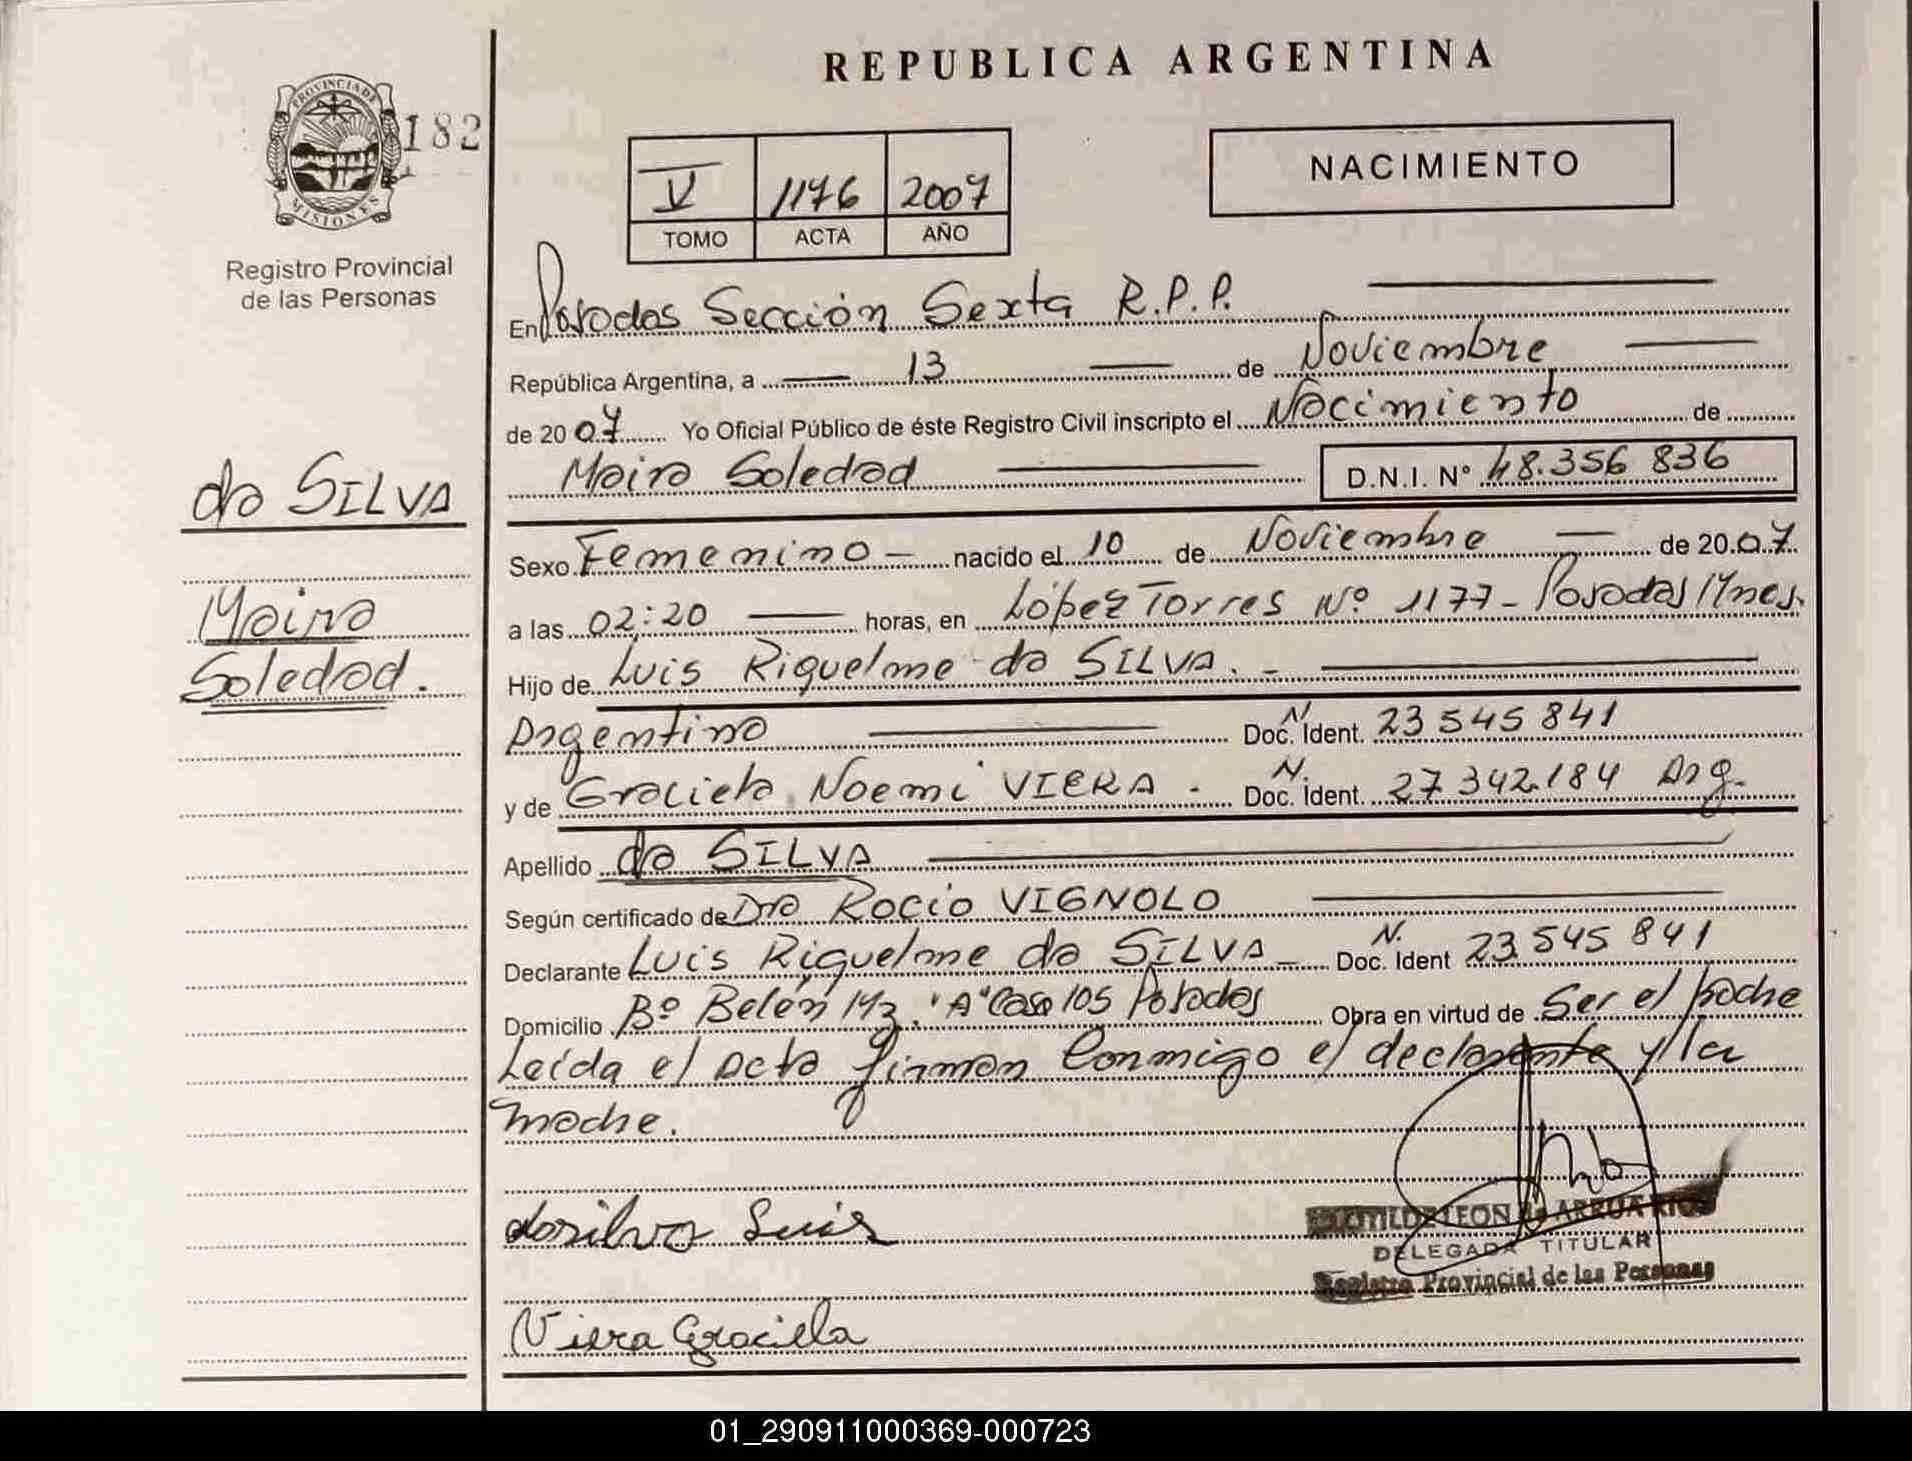 REPUBLICA ARGENTINA
PROVINCIA DE
MISIONES
182
Registro Provincial
de las Personas
V 1176 2007
TOMO ACTA AÑO
NACIMIENTO
da SILVA
Maira
Soledad.
En Posadas Sección Sexta R.P.P.
República Argentina, a 13 de Noviembre
de 2007 Yo Oficial Público de éste Registro Civil inscripto el Nacimiento de
Maira Soledad D.N.I. N° 48.356 836
Sexo Femenino nacido el 10 de Noviembre de 2007
a las 02:20 horas, en López Torres Nº 1177 - Posadas Mnes.
Hijo de Luis Riquelme da SILVA. -
Argentino N Doc. Ident. 23 545 841
y de Graciela Noemi VIERA - N. Doc. Ident. 27 342.184 Arg.
Apellido da SILVA
Según certificado de Dra Rocio VIGNOLO
Declarante Luis Riquelme da SILVA - N. Doc. Ident 23.545 841
Domicilio Bº Belén Mz. "A" Casa 105 Posadas Obra en virtud de Ser el padre
Leída el acta firman Conmigo el declarante y la
madre.
dasilva Luis
CLOTILDE LEON de ARRUA RIOS
DELEGADA TITULAR
Registro Provincial de las Personas
Viera Graciela
01_290911000369-000723